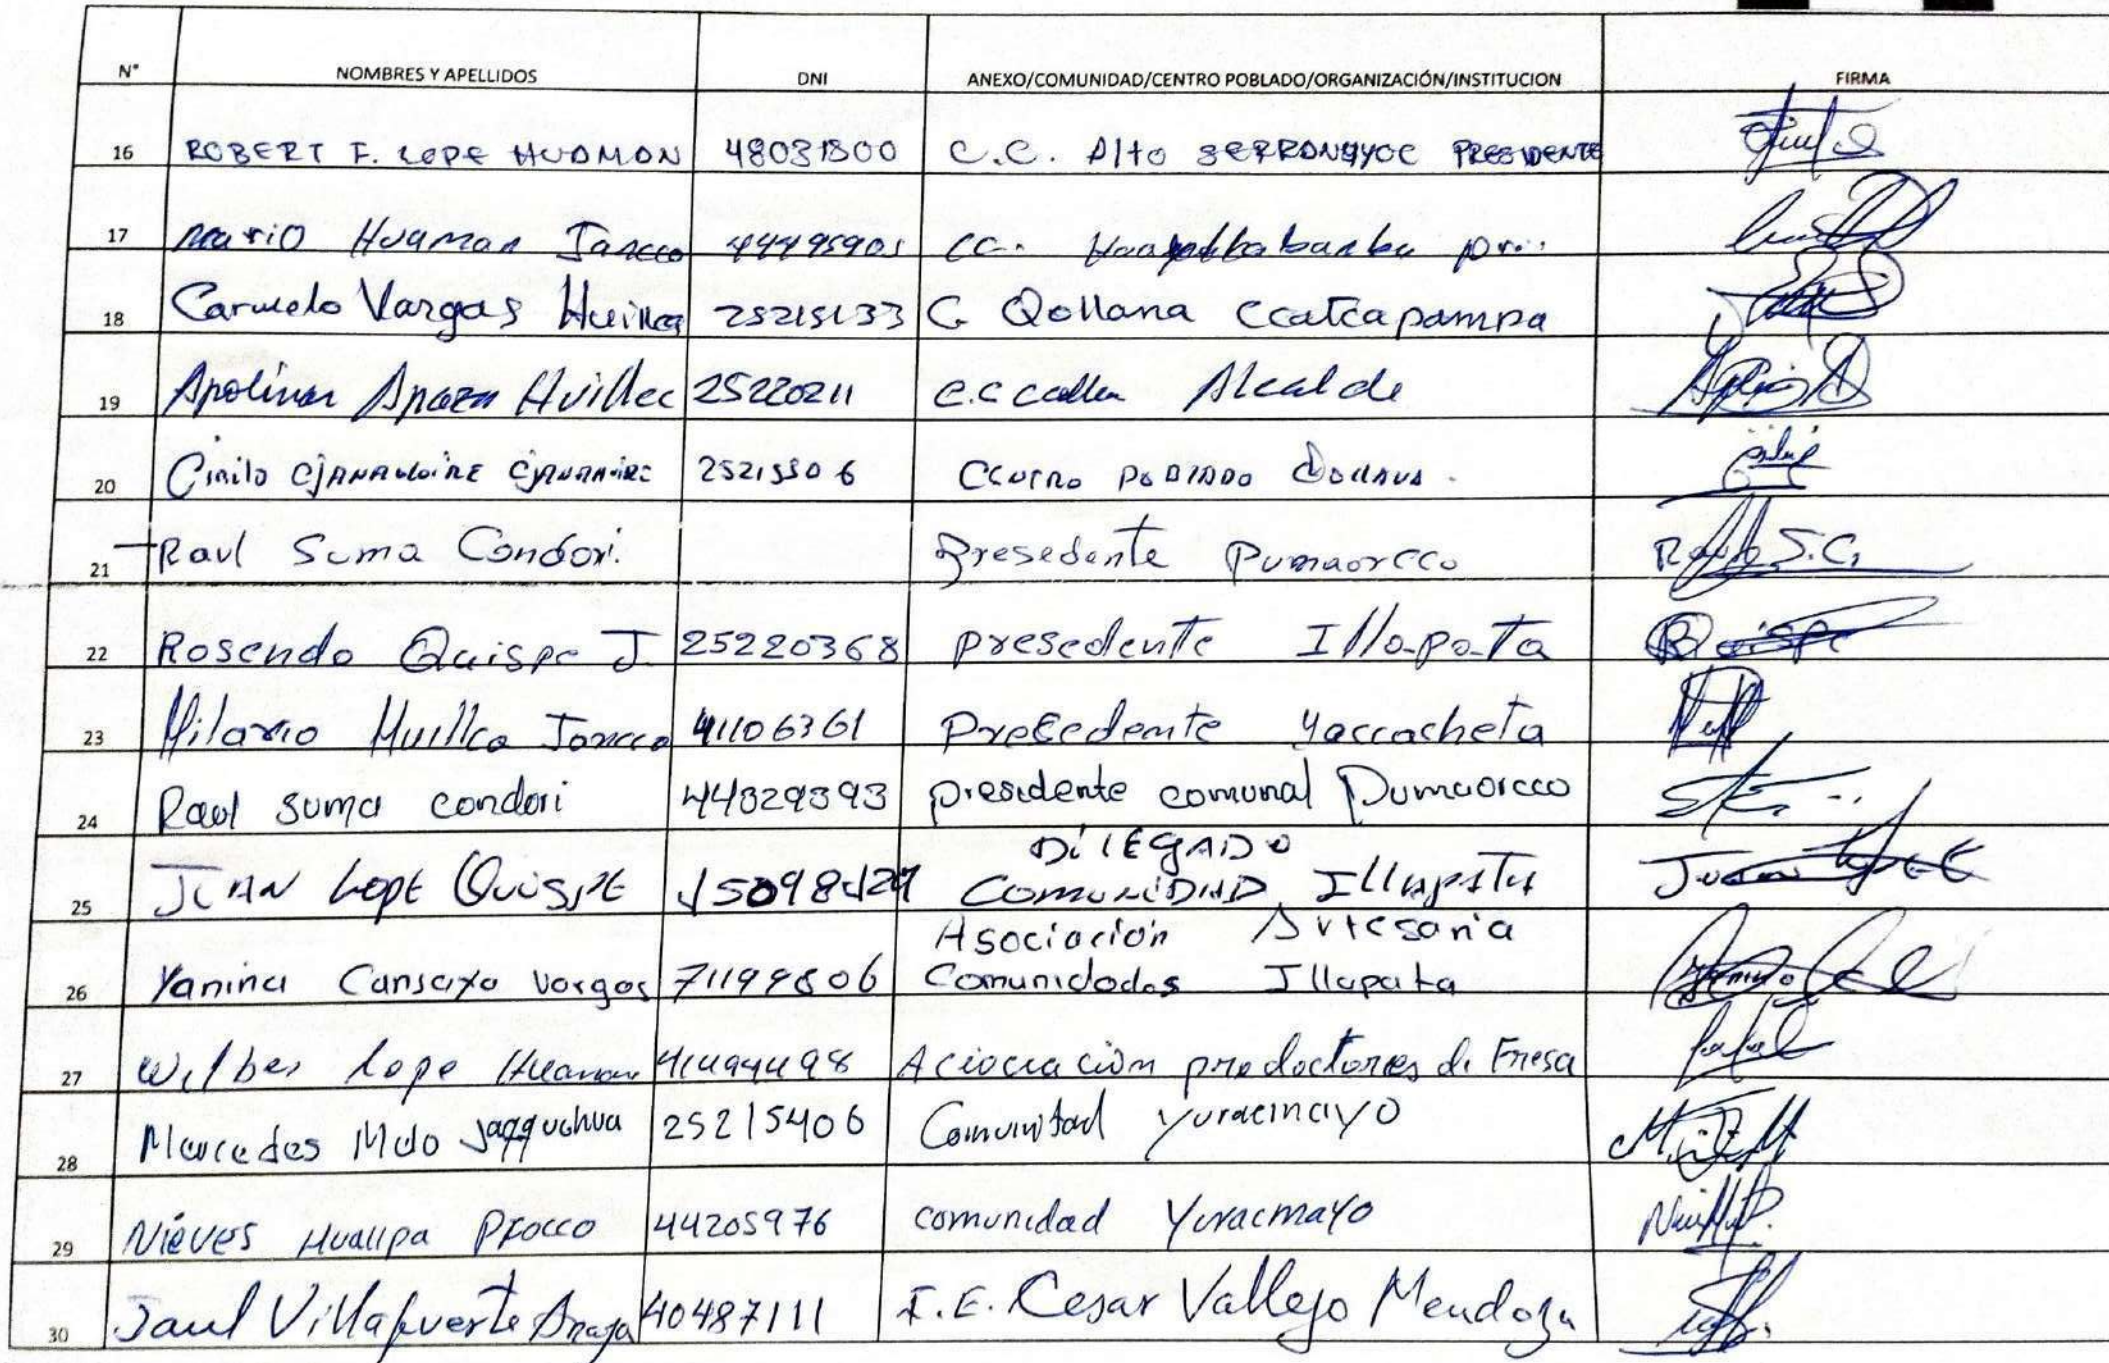 N° NOMBRES Y APELLIDOS DNI ANEXO/COMUNIDAD/CENTRO POBLADO/ORGANIZACIÓN/INSTITUCION FIRMA
16 ROBERT F. LOPE HUAMAN 48031800 C.C. Alto SERRANAYOC PRESIDENTE
17 Mario Huaman Jancco 44495905 CC.
18 Carmelo Vargas Huillca 25215133 C. Qollana Ccatcapampa
19 Apolinar Apaza Huillcc 25220211 C.C ccallea Alcalde
20 Cirilo 25215506 POBLADO
21 Raul Suma Condori. Presedente Pumaorcco Raul S.C.
22 Rosendo Quispe J. 25220368 presedente Illapata Quispe
23 Hilario Huillca Joncco 41106361 Precedente Yaccacheta
24 Raul suma condori 44029393 presidente comunal Pumaorcco
DILEGADO
25 JUAN Lope QUISPE COMUNIDAD Illapata Juan
Asociación Artesania
26 Yanina Cansaya Vargas 71199806 Comunidades Illapata
27 Wilber Lope Huaman 41494498 Aciociación productores de Fresa
28 Mercedes Melo Jaqquehua 25215406 Comunitad Yuracmayo
29 Nieves Huallpa Ppocco 44205976 comunidad Yuracmayo
30 Saul Villafuerte Apaza 40487111 I.E. Cesar Vallejo Mendoza